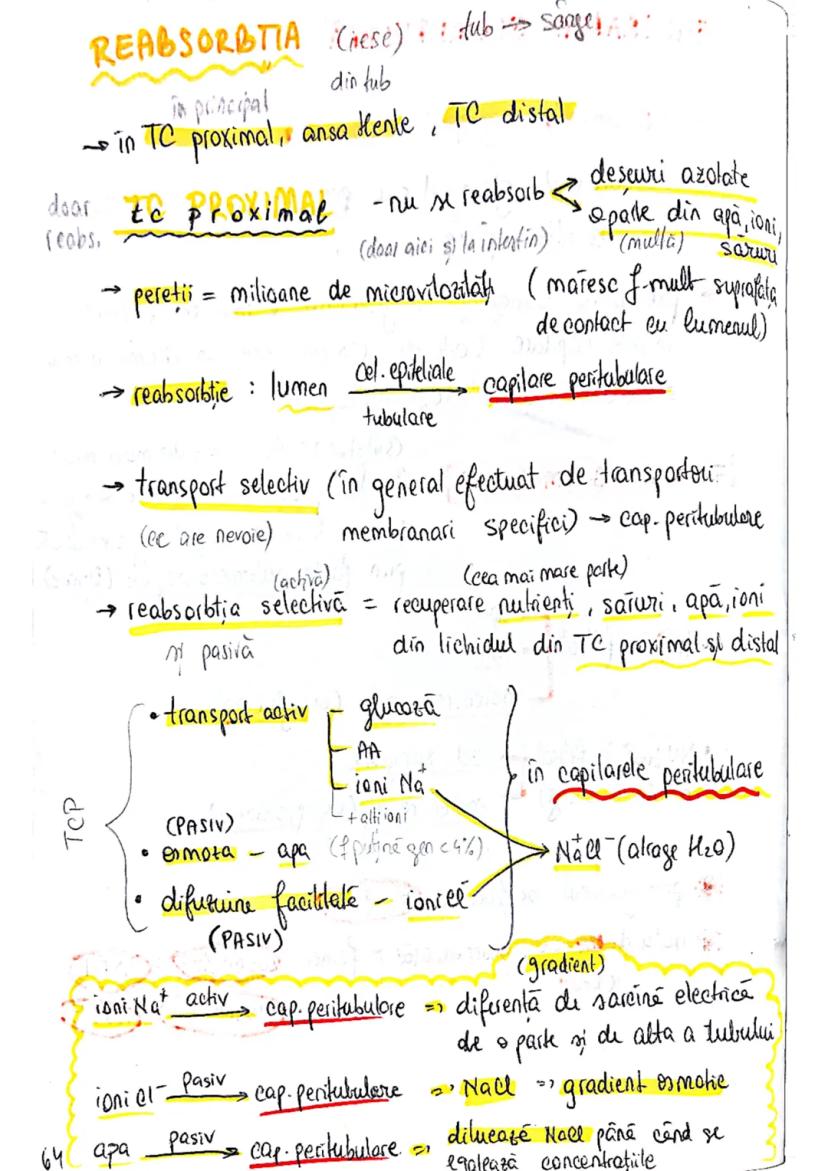 REABSORBȚIA (iese) : tub → sânge
din tub
în principal
→ în TC proximal, ansa Henle, TC distal
doar reabs.
tc proximal - nu se reabsorb < deșeuri azotate
o parte din apă, ioni,
(doar aici și la intestin) (multă) săruri
→ pereții = milioane de microvilozități (măresc f. mult suprafața
de contact cu lumenul)
→ reabsorbție : lumen cel. epiteliale tubulare → capilare peritubulare
→ transport selectiv (în general efectuat de transportori
(ce are nevoie) membranari specifici) → cap. peritubulare
(activă) (cea mai mare parte)
→ reabsorbția selectivă = recuperare nutrienți, săruri, apă, ioni
și pasivă din lichidul din TC proximal și distal
TCP
• transport activ glucoză
AA
ioni Na⁺
+ alți ioni
în capilarele peritubulare
(PASIV)
• osmoza - apa (f puțină <4%)
Na⁺Cl⁻ (atrage H2O)
• difuziune facilitată - ioni Cl⁻
(PASIV)
(gradient)
ioni Na⁺ activ → cap. peritubulare => diferență de sarcină electrică
de o parte și de alta a tubului
ioni Cl⁻ pasiv → cap. peritubulare => NaCl => gradient osmotic
64 apa pasiv → cap. peritubulare => diluează NaCl până când se
egalează concentrațiile